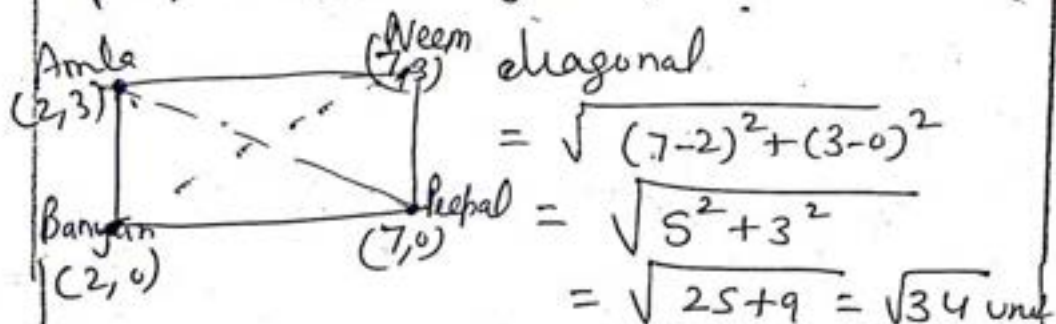 Amla
(2,3)
Neem
(7,3)
diagonal
= √(7-2)²+(3-0)²
Banyan
(2,0)
Peepal
(7,0)
= √5²+3²
= √25+9 = √34 unit